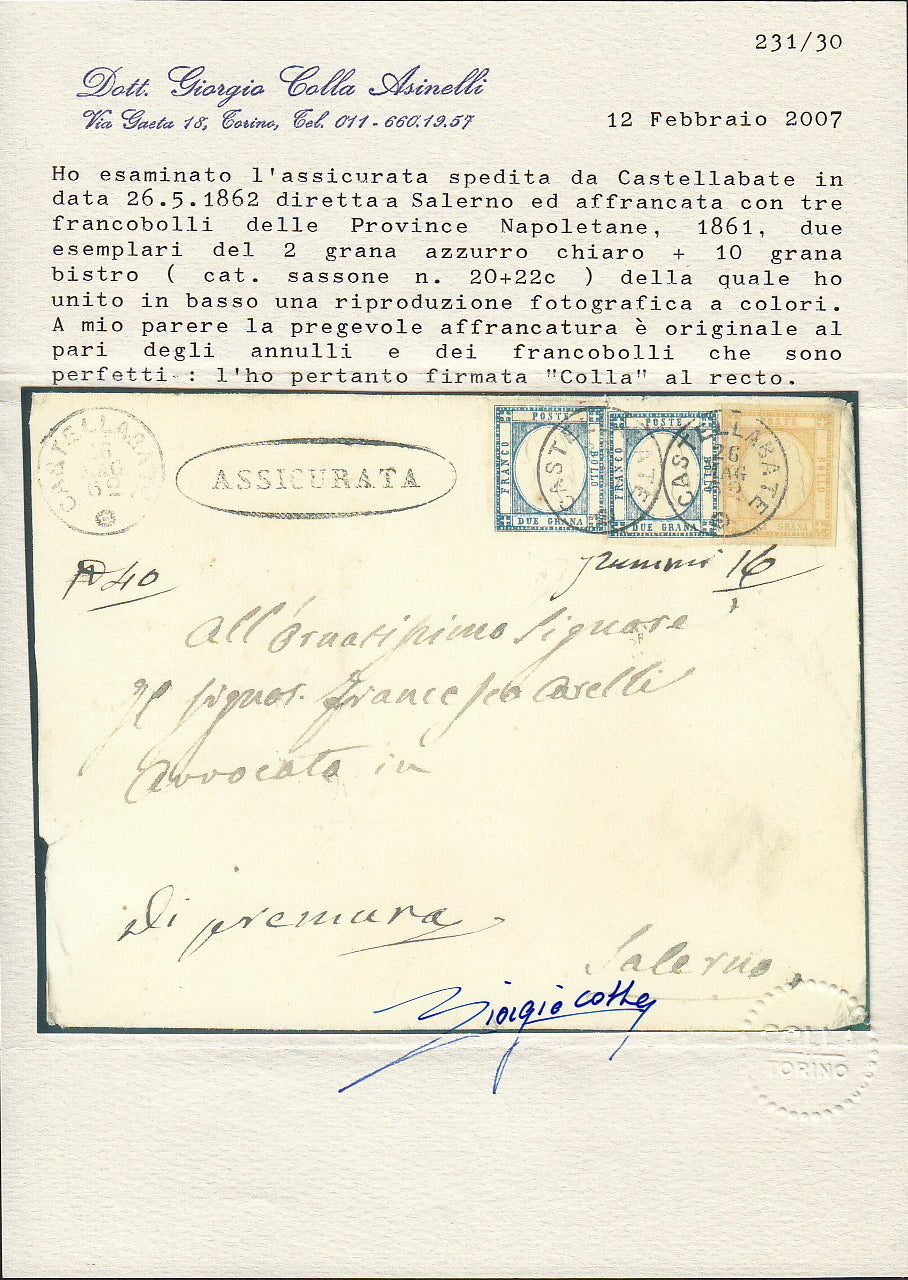 231/30
Dott. Giorgio Colla Asinelli
Via Gaeta 18, Torino, Tel. 011 - 660.19.57
12 Febbraio 2007
Ho esaminato l'assicurata spedita da Castellabate in
data 26.5.1862 diretta a Salerno ed affrancata con tre
francobolli delle Province Napoletane, 1861, due
esemplari del 2 grana azzurro chiaro + 10 grana
bistro ( cat. sassone n. 20+22c ) della quale ho
unito in basso una riproduzione fotografica a colori.
A mio parere la pregevole affrancatura è originale al
pari degli annulli e dei francobolli che sono
perfetti : l'ho pertanto firmata "Colla" al recto.
CASTELLABATE
26
MAG
62
ASSICURATA
FRANCO POSTE BOLLO
DUE GRANA
FRANCO POSTE BOLLO
DUE GRANA
POSTE BOLLO
GRANA
CASTELLABATE
26
MAG
N 40
grammi 16
All'Ornatissimo Signore
Il Signor Francesco Caselli
Avvocato in
Di premura
Salerno
Giorgio Colla
COLLA
TORINO